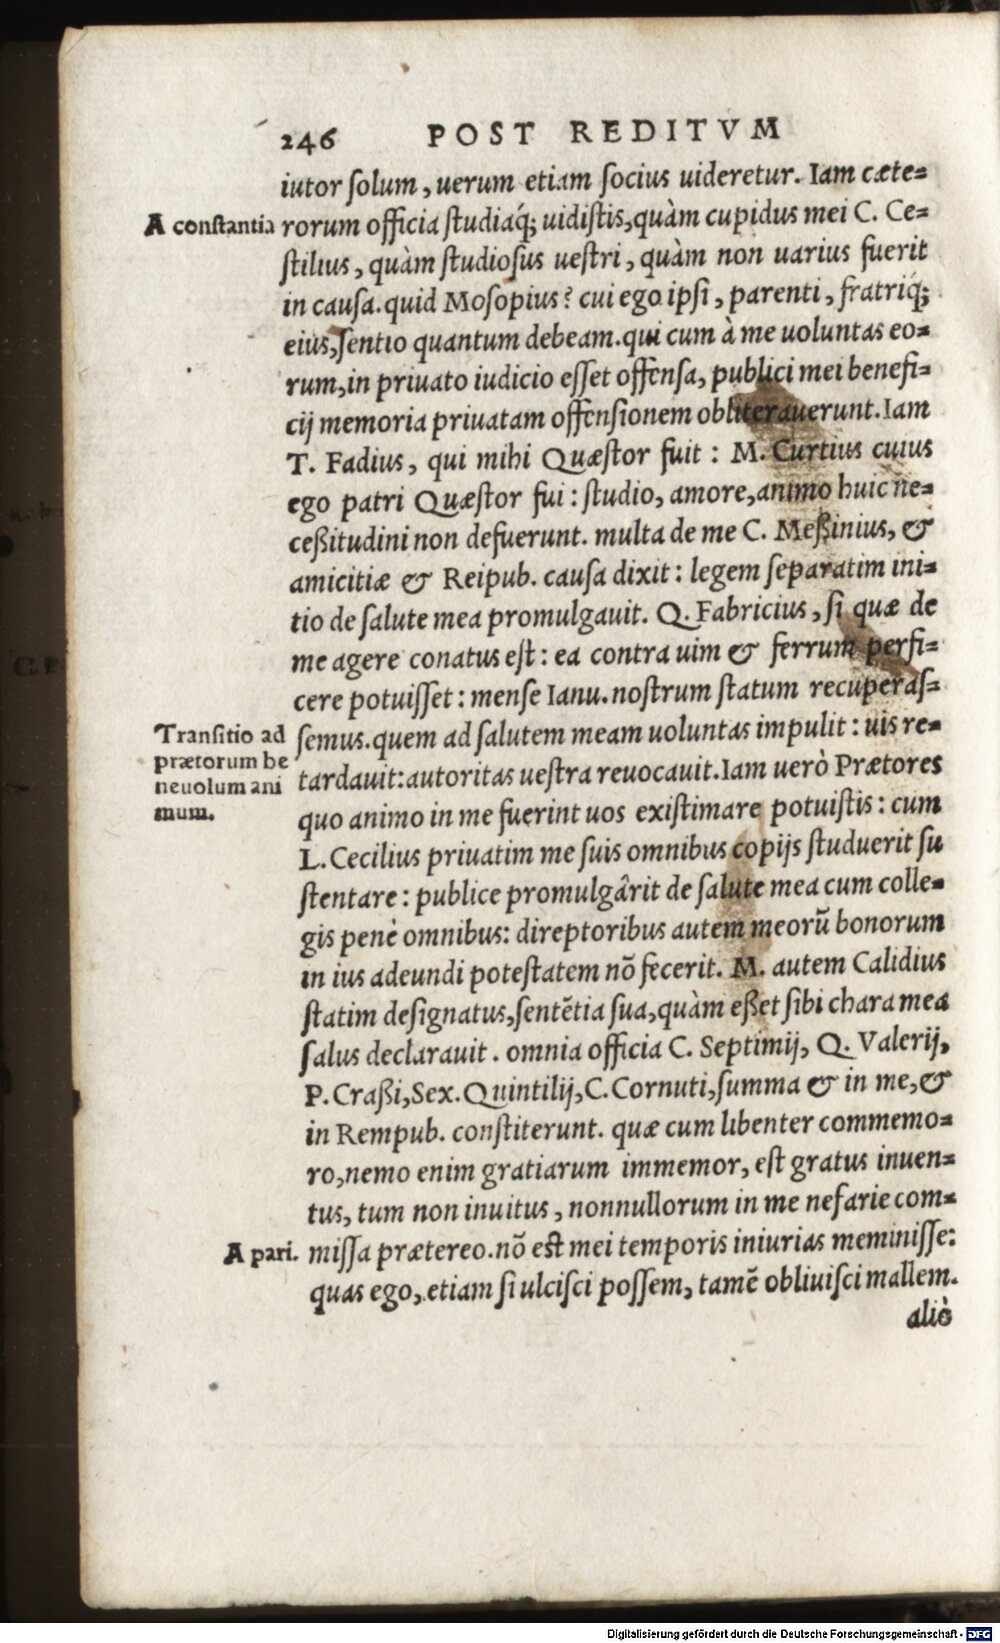 246 POST REDITVM
iutor solum, uerum etiam socius uideretur. Iam cæte=
A constantia
rorum officia studiaq́; uidistis, quàm cupidus mei C. Ce=
stilius, quàm studiosus uestri, quàm non uarius fuerit
in causa. quid Mosopius? cui ego ipsi, parenti, fratriq́;
eius, sentio quantum debeam. qui cum à me uoluntas eo=
rum, in priuato iudicio esset offensa, publici mei benefi=
cij memoria priuatam offensionem obliterauerunt. Iam
T. Fadius, qui mihi Quæstor fuit: M. Curtius cuius
ego patri Quæstor fui: studio, amore, animo huic ne=
ceßitudini non defuerunt. multa de me C. Meßinius, &
amicitiæ & Reipub. causa dixit: legem separatim ini=
tio de salute mea promulgauit. Q. Fabricius, si quæ de
me agere conatus est: ea contra uim & ferrum perfi=
cere potuisset: mense Ianu. nostrum statum recuperas=
Transitio ad
prætorum be
neuolum ani
mum.
semus. quem ad salutem meam uoluntas impulit: uis re=
tardauit: autoritas uestra reuocauit. Iam uerò Prætores
quo animo in me fuerint uos existimare potuistis: cum
L. Cecilius priuatim me suis omnibus copijs studuerit su
stentare: publice promulgârit de salute mea cum colle=
gis penè omnibus: direptoribus autem meorũ bonorum
in ius adeundi potestatem nõ fecerit. M. autem Calidius
statim designatus, sentẽtia sua, quàm eßet sibi chara mea
salus declarauit. omnia officia C. Septimij, Q. Valerij,
P. Craßi, Sex. Quintilij, C. Cornuti, summa & in me, &
in Rempub. constiterunt. quæ cum libenter commemo=
ro, nemo enim gratiarum immemor, est gratus inuen=
tus, tum non inuitus, nonnullorum in me nefarie com=
A pari.
missa prætereo. nõ est mei temporis iniurias meminisse:
quas ego, etiam si ulcisci possem, tamẽ obliuisci mallem.
aliò
Digitalisierung gefördert durch die Deutsche Forschungsgemeinschaft - DFG